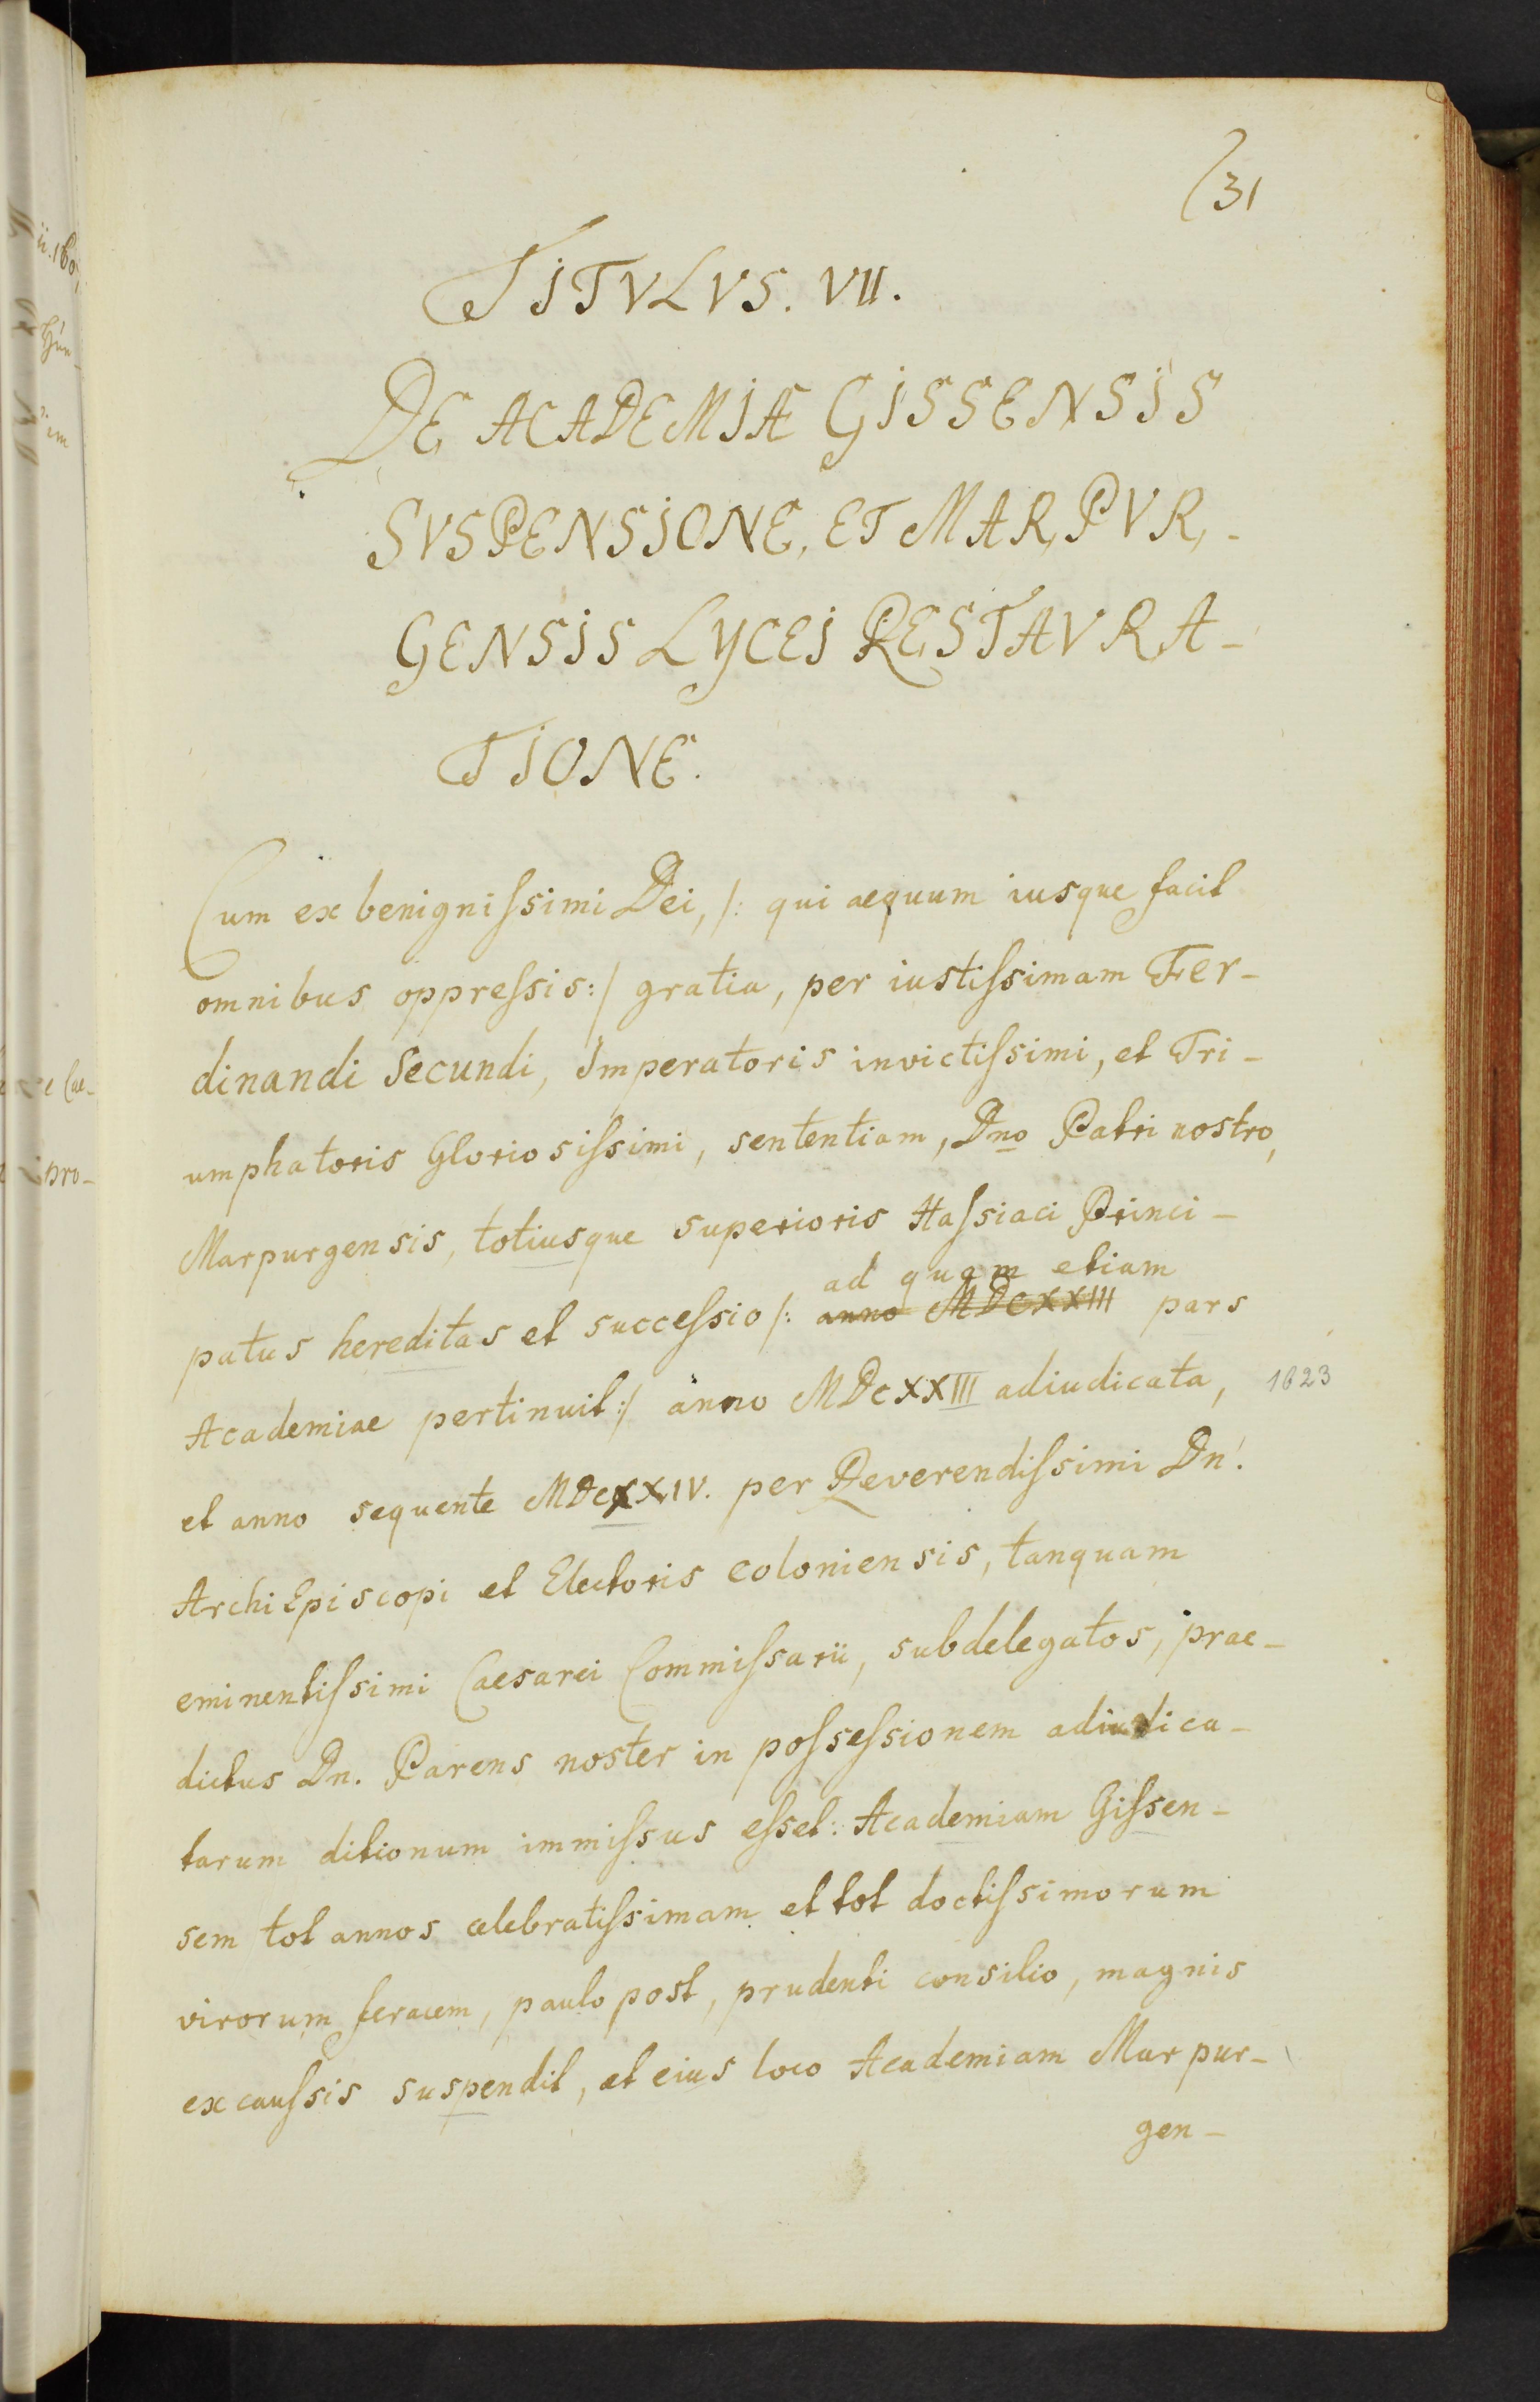 31
TITVLVS. VII.
DE ACADEMIÆ GISSENSIS
SVSPENSIONE, ET MARPVR-
GENSIS LYCEI RESTAVRA-
TIONE.
Cum ex benigniſsimi Dei, /: qui aequum iusque facit
omnibus oppreſsis :/ gratia, per iustiſsimam Fer-
dinandi Secundi, Imperatoris invictiſsimi, et Tri-
umphatoris Gloriosiſsimi, sententiam, Dno Patri nostro,
Marpurgensis, totiusque superioris Haſsiaci Princi-
ad quam etiam
patus hereditas et succeſsio /: anno MDCXXIII pars
Academiae pertinuit :/ anno MDCXXIII adiudicata, 1623
et anno sequente MDCXXIV. per Reverendiſsimi Dn.
ArchiEpiscopi et Electoris Coloniensis, tanquam
eminentiſsimi Caesarei Commiſsarii, subdelegatos, prae-
dictus Dn. Parens noster in poſseſsionem adiudica-
tarum ditionum immiſsus eſset: Academiam Giſsen-
sem tot annos celebratiſsimam et tot doctiſsimorum
virorum feracem, paulo post, prudenti consilio, magnis
ex cauſsis suspendit, et eius loco Academiam Marpur-
gen-